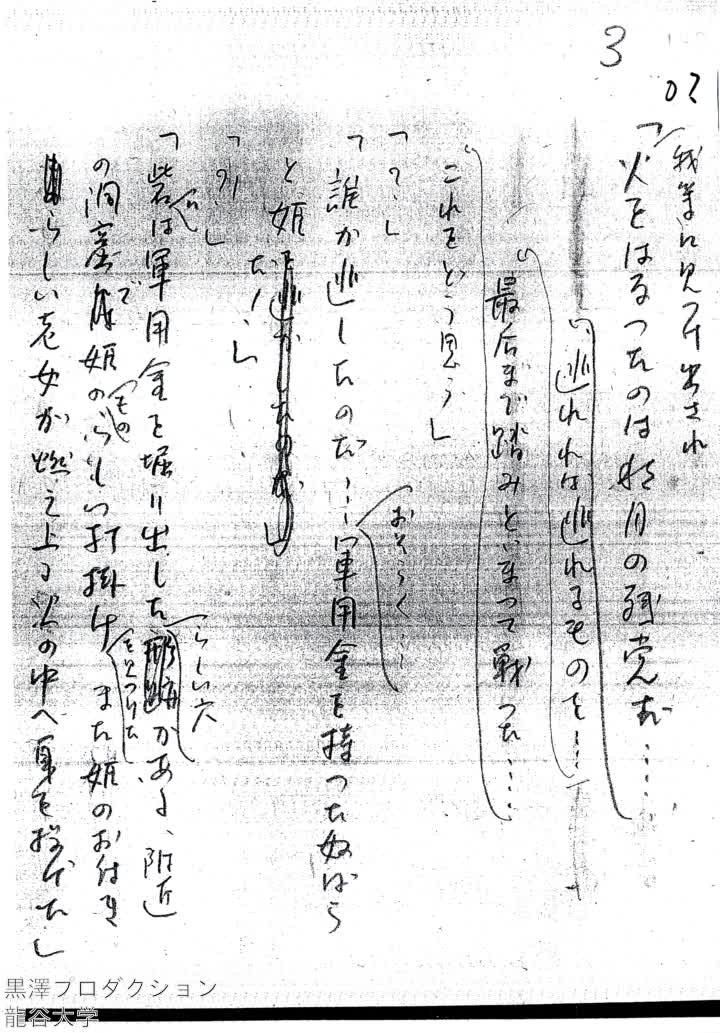 3
我等に見つけ出され
「火をはなつたのは秋月の残党だ……
逃れれば逃れるものを…
最后まで踏みとゞまつて戦つた……
これをどう思う」
「?…」
「誰か逃したのだ…軍用金を持つた奴ばら
おそらく…
と姫を逃がしたのだ」
だ!…」
「砦は軍用金を堀り出した形跡がある、附近
らしい穴
の洞窟で姫のらしい打掛け また姫のお付き
もの
を見つけた
らしい老女が燃え上る火の中へ身を投げた」
黒澤プロダクション
龍谷大学